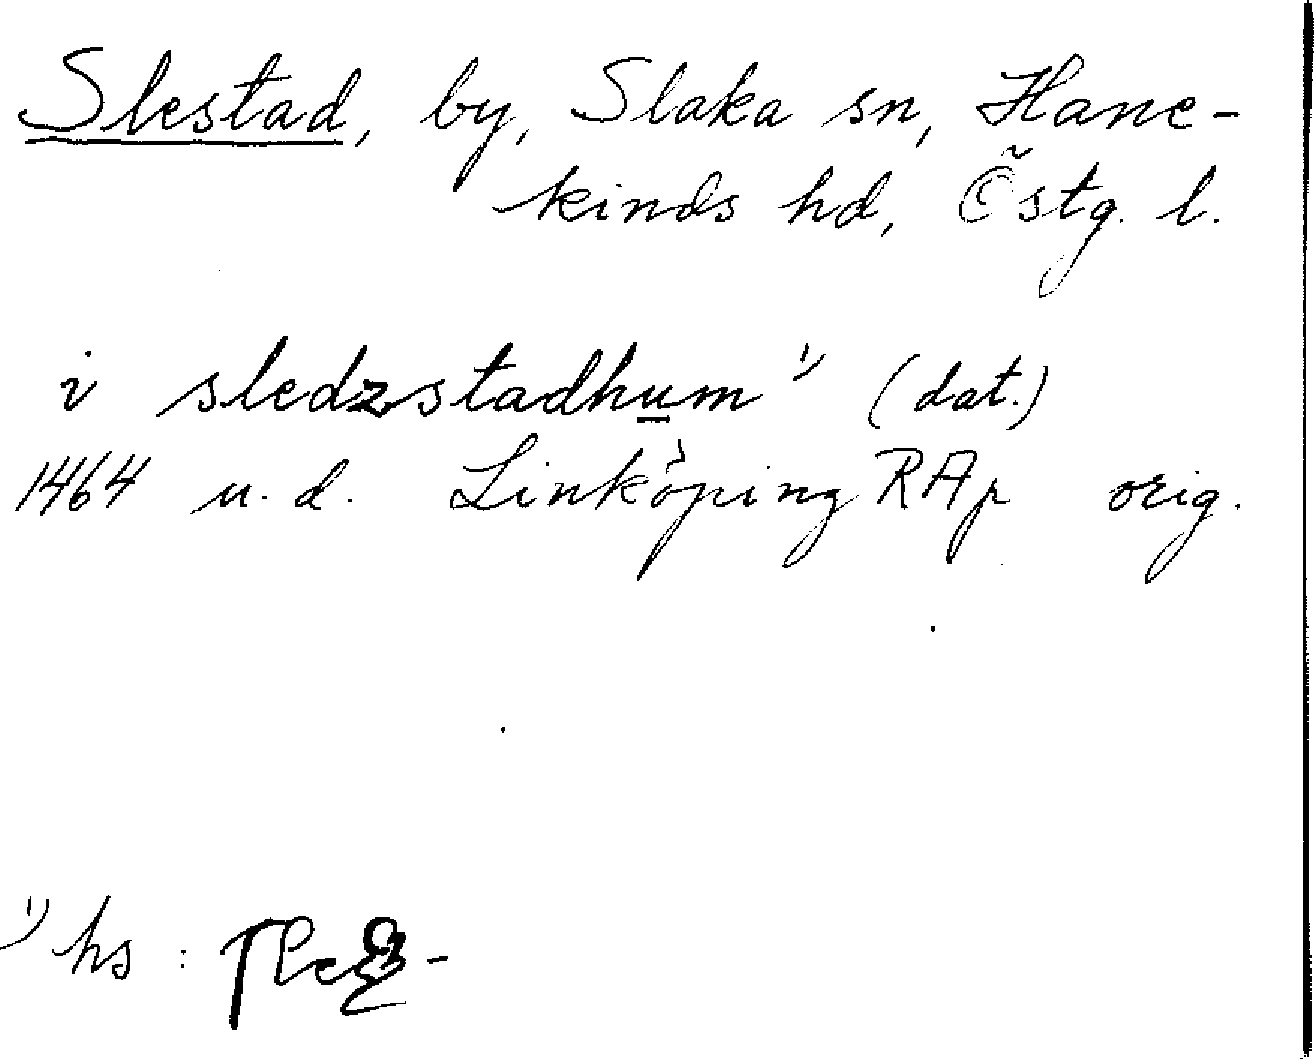 Slestad, by, Slaka sn, Hane-
kinds hd, Östg. l.
i sledzstadhum 1) (dat.)
1464 u. d. Linköping RAp orig.
1) hs :